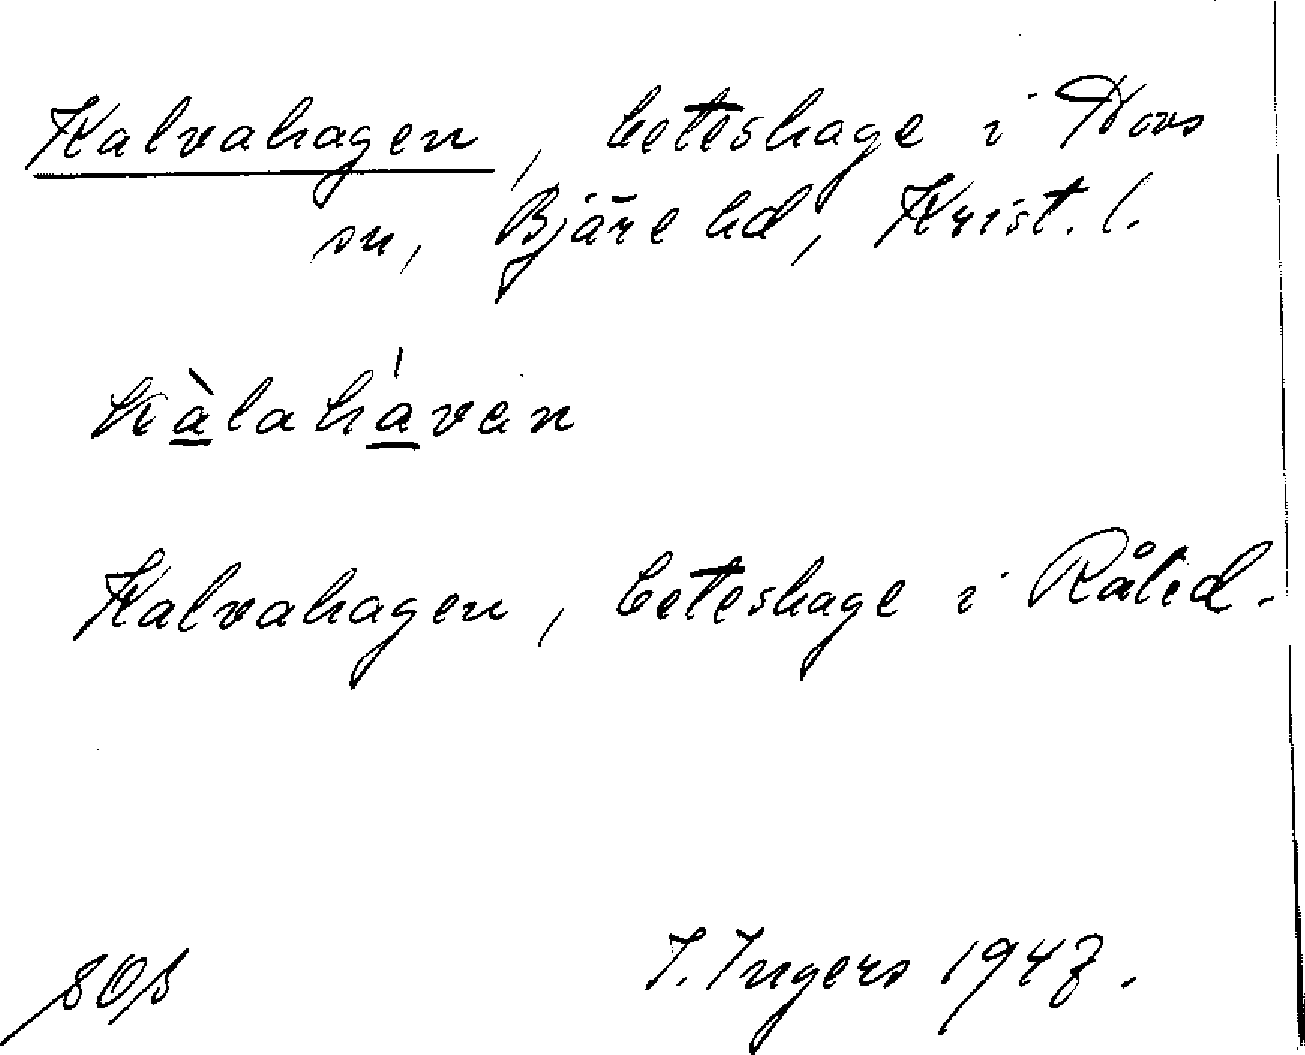 Kalvahagen, beteshage i Hovs
sn, Bjäre hd, Krist. l.
kàlahávan
Kalvahagen, beteshage i Rålid.
I. Ingers 1947.